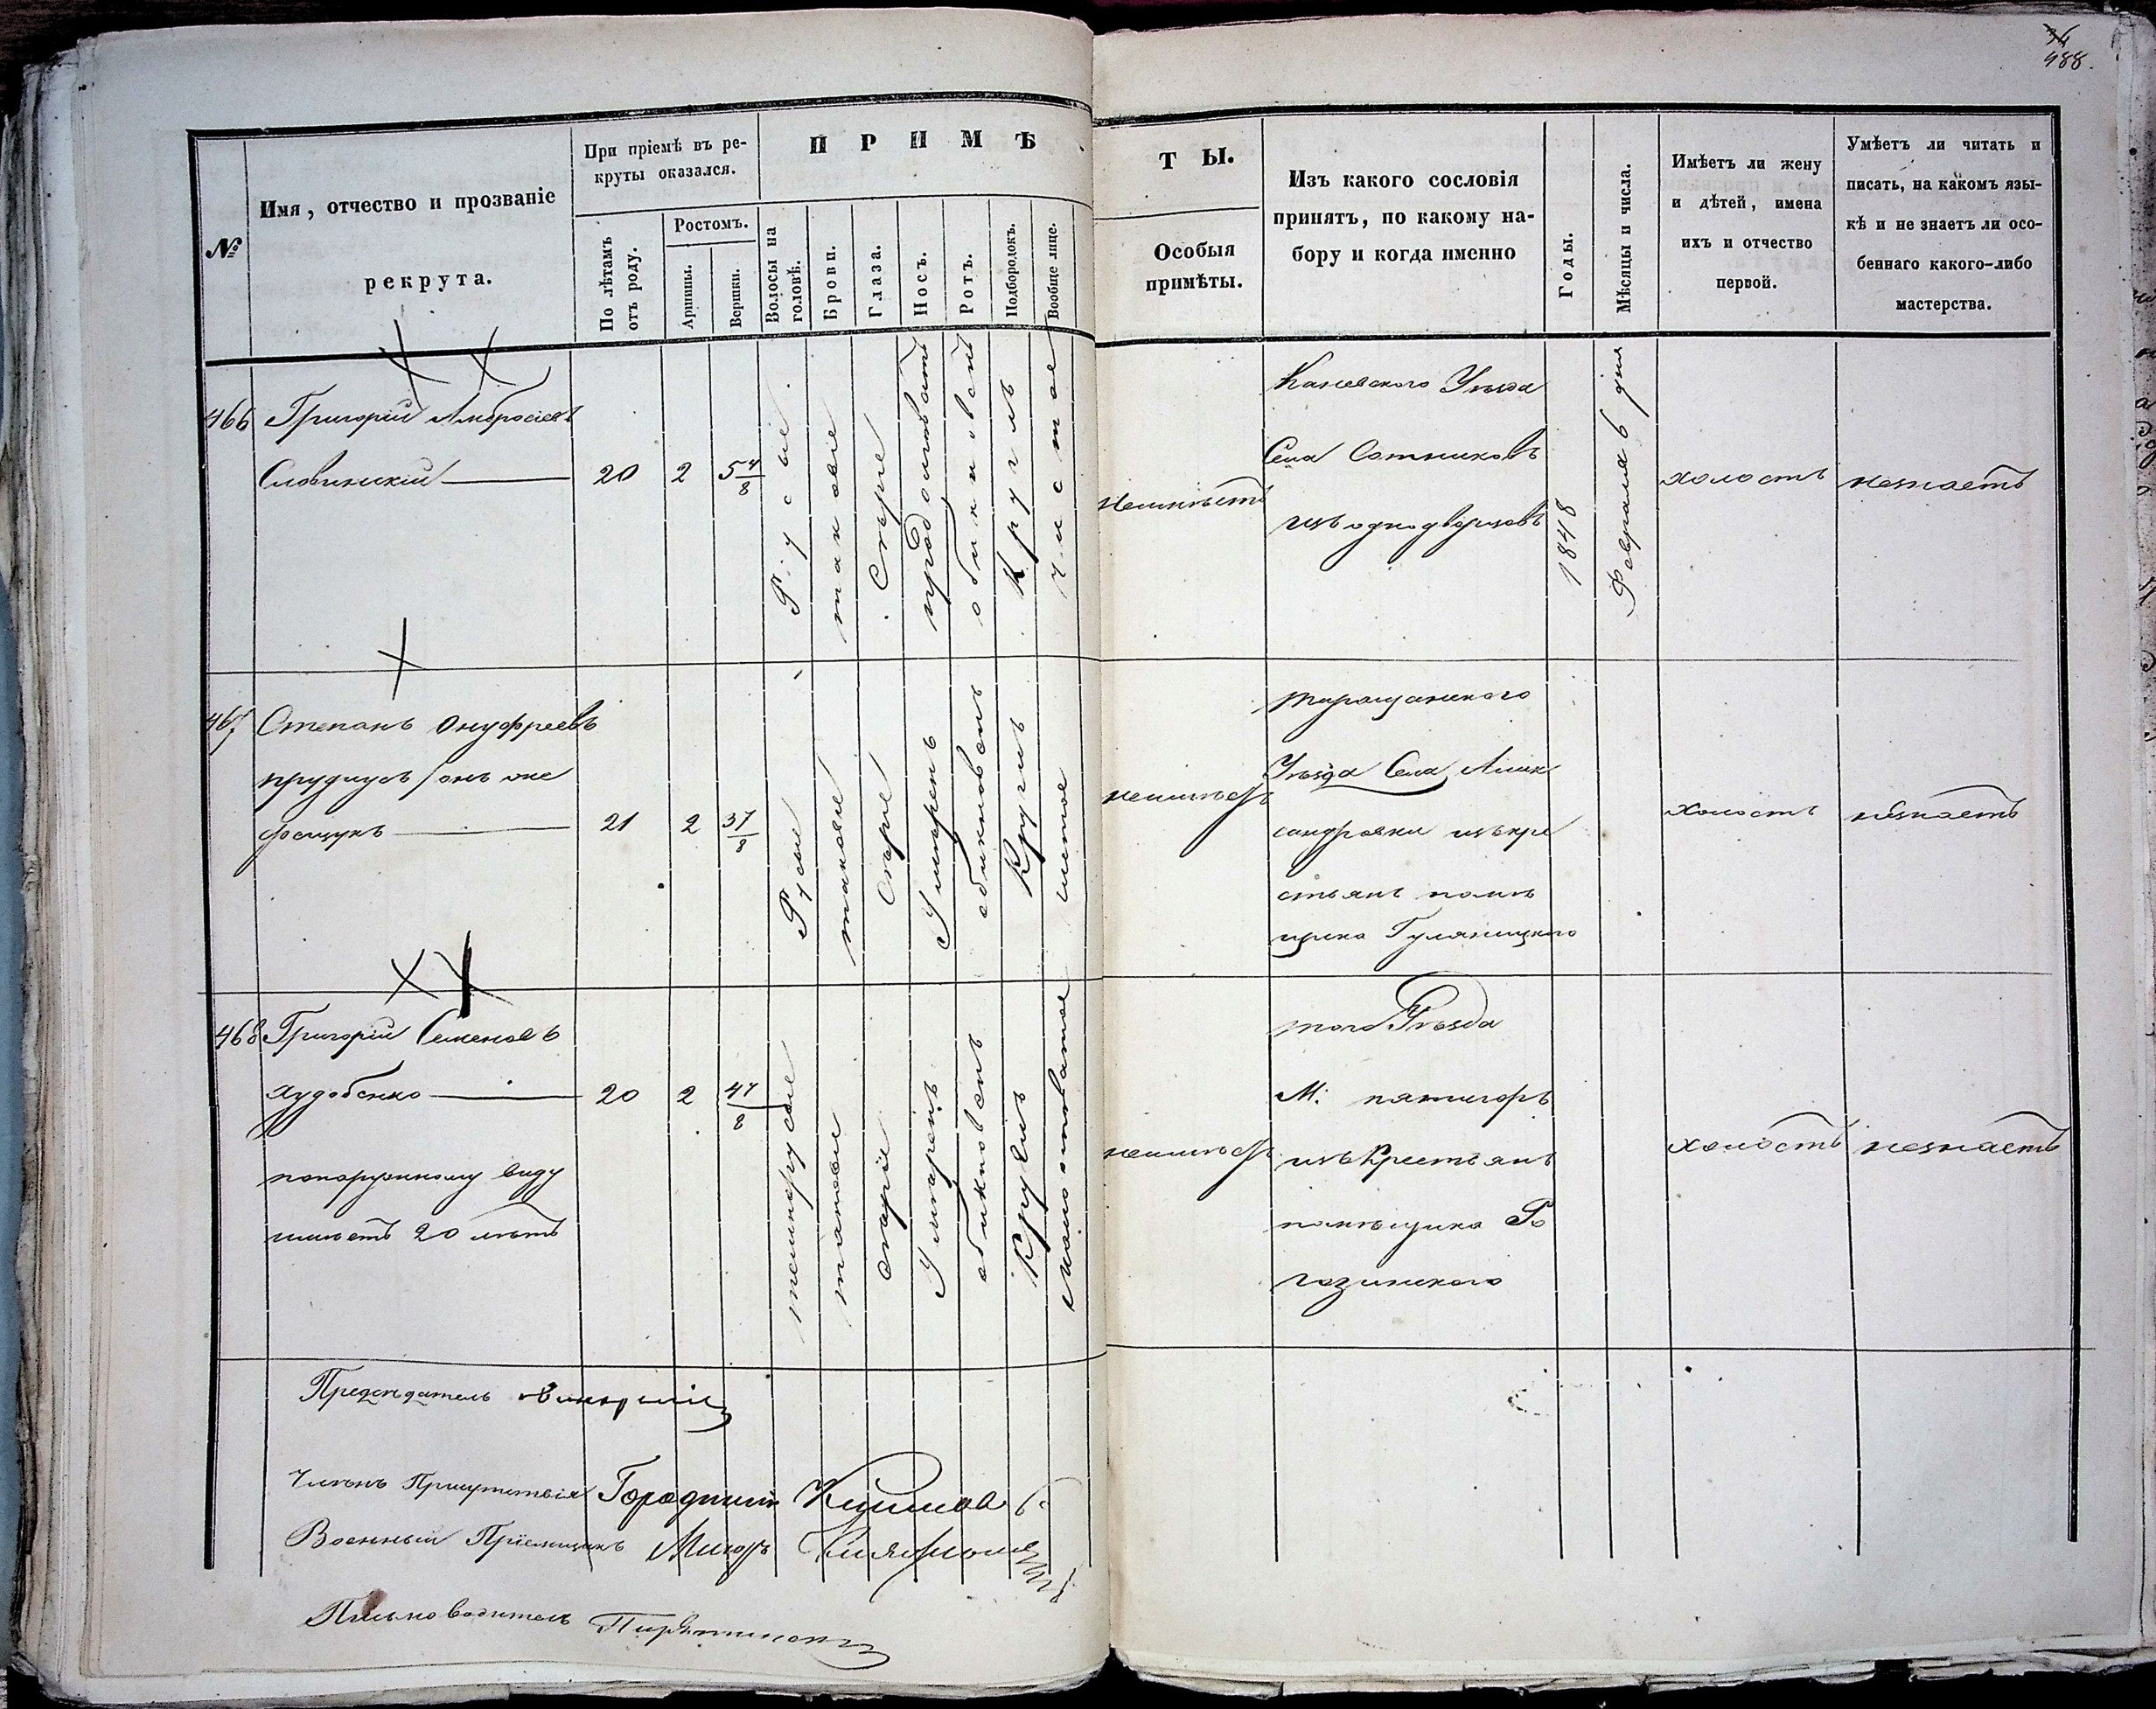 34
488.
№
Имя, отчество и прозваніе
рекрута.
При пріемѣ въ ре-
круты оказался.
По лѣтамъ
отъ роду.
Ростомъ.
Аршины.
Вершки.
П Р И М Ѣ
Волосы на
головѣ.
Брови.
Глаза.
Носъ.
Ротъ.
Подбородокъ.
Вообще лице.
Т Ы.
Особыя
примѣты.
Изъ какого сословія
принятъ, по какому на-
бору и когда именно
Годы.
Мѣсяцы и числа.
Имѣетъ ли жену
и дѣтей, имена
ихъ и отчество
первой.
Умѣетъ ли читать и
писать, на какомъ язы-
кѣ и не знаетъ ли осо-
беннаго какого-либо
мастерства.
466
Григорій Амбросіевъ
Словинскій
20
2
5 4/8
Русые
таковіе
Сѣрые
продолговатъ
обикновен
Круглъ
чистое
Неимѣетъ
Каневского Уѣзда
Села Сотниковъ
изъ однодворцовъ
1848
Февраля 6 дня
холостъ
незнаетъ
467
Степанъ Онуфреевъ
прудиусъ / онъ же
фещукъ
21
2
3 7/8
Русые
таковые
Сѣрые
Умѣренъ
обикновенъ
Круглъ
чистое
неимѣетъ
Таращанского
Уѣзда Села Алек
сандровки изъ кре
стьянъ помѣ
щика Гуляницкого
холостъ
незнаетъ
468
Григорій Семеновъ
Худобенко
понаружному виду
имѣетъ 20 лѣтъ
20
2
4 7/8
темнорусые
таковые
Сѣрые
Умѣренъ
обикновенъ
Круглъ
неимѣетъ
того Уѣзда
М: пятигоръ
изъ Крестьянъ
помѣщика Ро
гозинского
холостъ
незнаетъ
Предсѣдатель
Членъ Присутствія Городничій
Военный Пріемщикъ Маіоръ
Письмоводитель